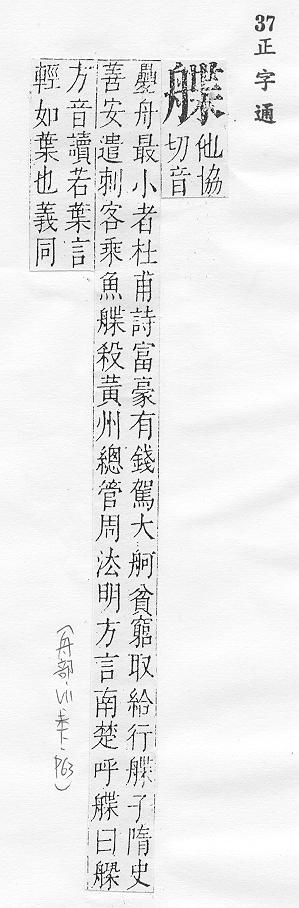 37正字通
艓
他協
切音
疊舟最小者杜甫詩富豪有錢駕大舸貧窮取給行艓子隋史
善安遣刺客乘魚艓殺黃州總管周法明方言南楚呼艓曰
方音讀若葉言
輕如葉也義同
(舟部 P63)